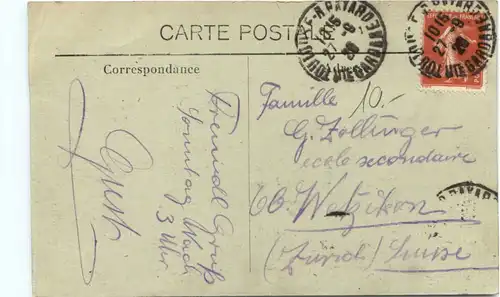 CARTE POSTALE
Correspondance
Freundl. Gruß
Sonntag Nach
3 Uhr
Famille
10.-
G. Zollinger
école secondaire
Wetzikon
(Zürich) Suisse